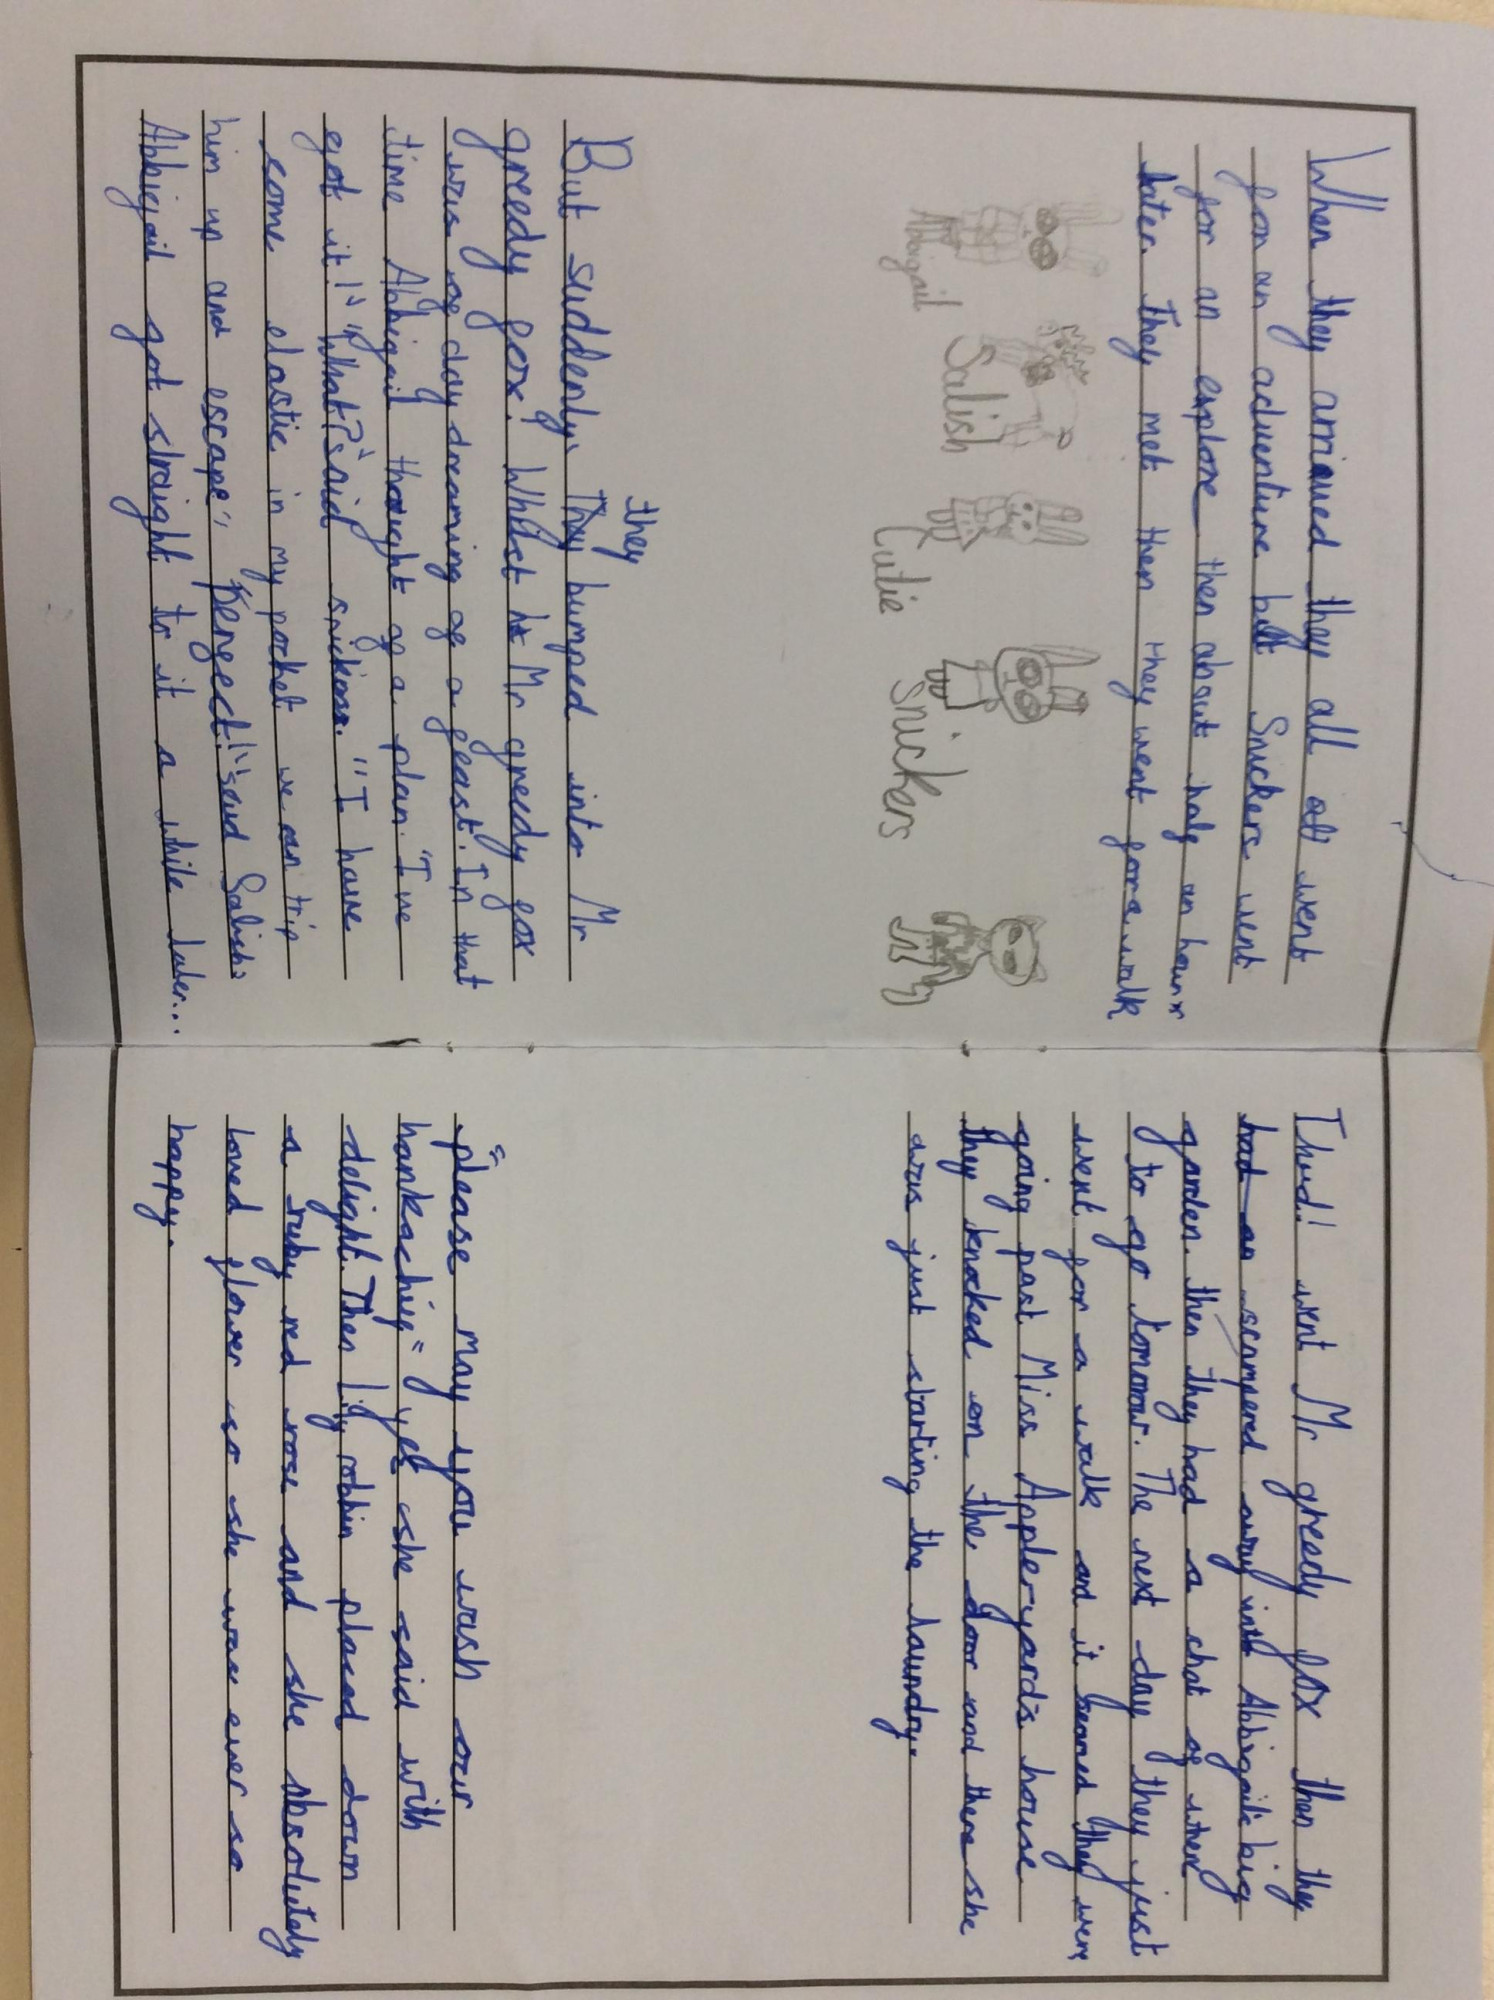 When they arrived they all went
for an adventure but Snickers went
for an explore then about half an hour
later. They met then they went for a walk
Abbigail
Salish
Cutie
Snickers
they
But suddenly. They bumped into Mr
greedy fox! Whilst Mr greedy fox
was of day dreaming of a feast. In that
time Abbigail thought of a plan. "I've
got it!" "What?" said snickers. "I have
some elastic in my pocket we can trip
him up and escape". "Perfect!" said Salish.
Abbigail got straight to it a while later...
Thud! went Mr greedy fox then they
had an scampered away into Abbigail's big
garden. then they had a chat of where
to go tomorow. The next day they just
went for a walk and it seamed they were
going past Miss Apple-yard's house
they knocked on the door and there she
was just starting the laundry.
"please may you wash our
hankachify" yes she said with
delight. Then Lily robbin placed down
a ruby red rose and she absolutely
loved flower so she was ever so
happy.